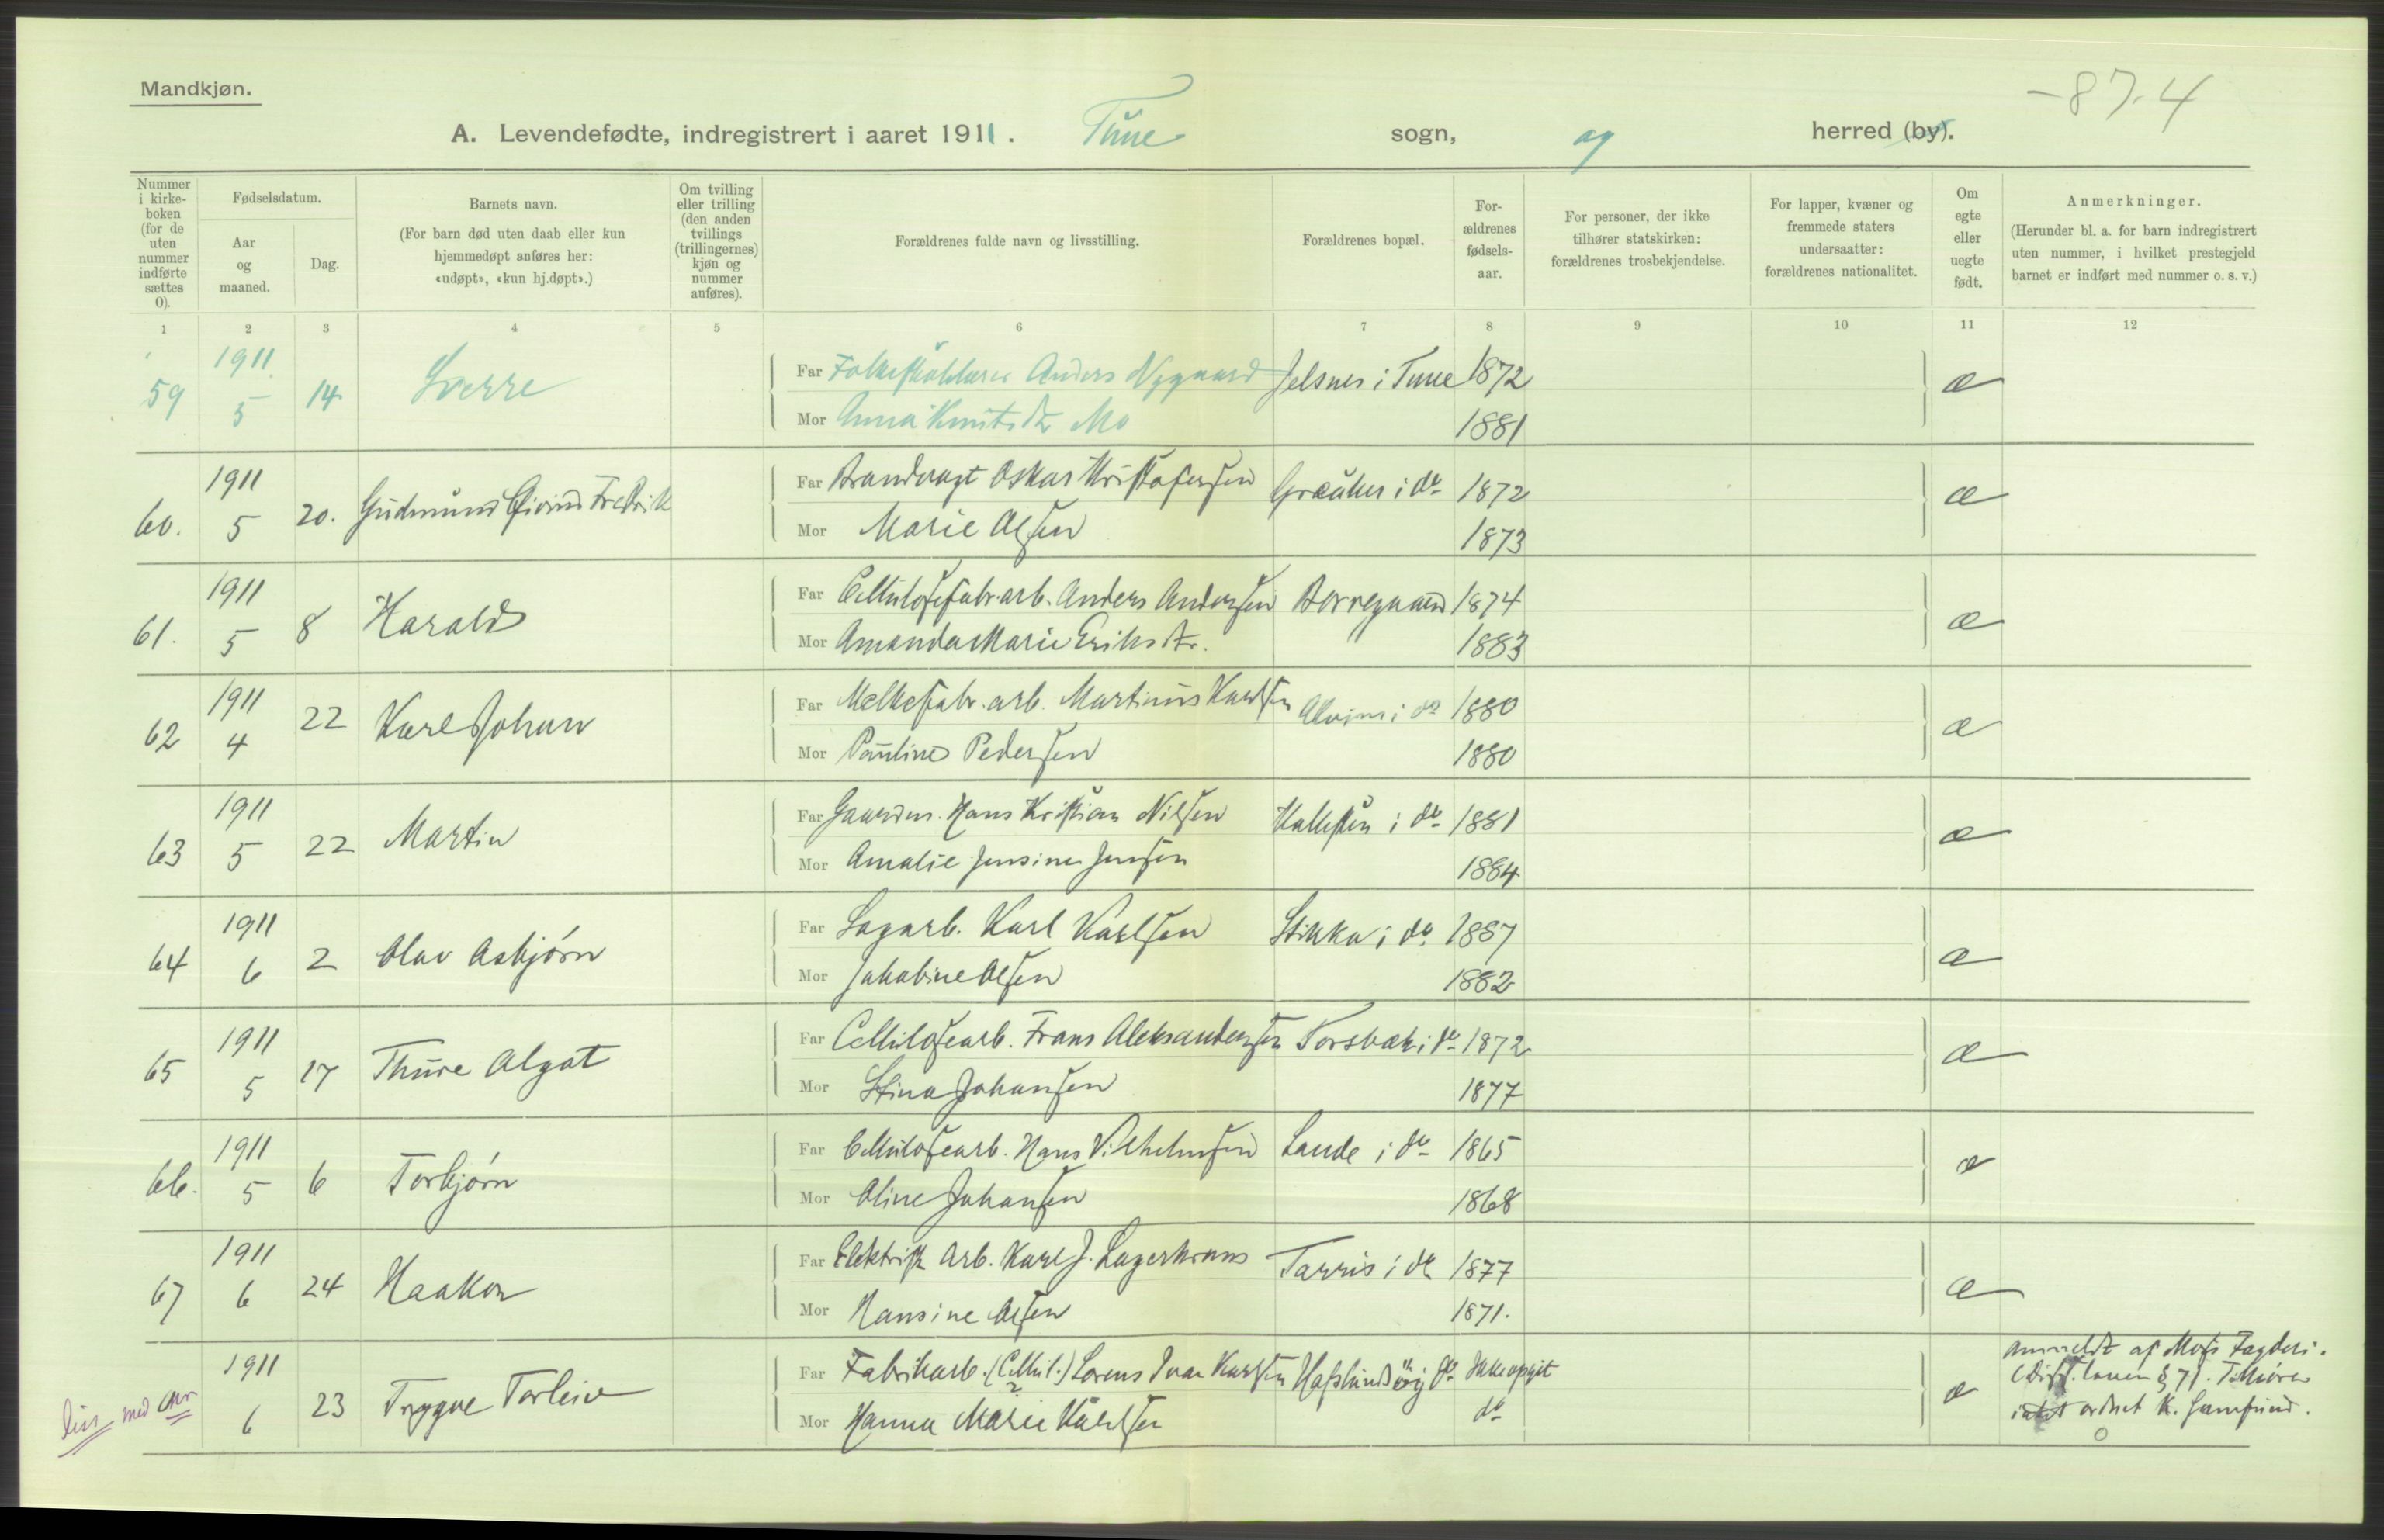 Mandkjøn.
-87.4
A. Levendefødte, indregistrert i aaret 1911. Tune sogn, og herred (by).
Nummer i kirke-boken (for de uten nummer indførte sættes 0).
Fødselsdatum.
Aar og maaned.
Dag.
Barnets navn.
(For barn død uten daab eller kun hjemmedøpt anføres her: «udøpt», «kun hj.døpt».)
Om tvilling eller trilling (den anden tvillings (trillingernes) kjøn og nummer anføres).
Forældrenes fulde navn og livsstilling.
Forældrenes bopæl.
For-ældrenes fødsels-aar.
For personer, der ikke tilhører statskirken: forældrenes trosbekjendelse.
For lapper, kvæner og fremmede staters undersaatter: forældrenes nationalitet.
Om egte eller uegte født.
Anmerkninger.
(Herunder bl. a. for barn indregistrert uten nummer, i hvilket prestegjeld barnet er indført med nummer o. s. v.)
1 2 3 4 5 6 7 8 9 10 11 12
59 1911 5 14 Sverre
Far Folkeskolelærer Anders Nygaard Jelsnes i Tune 1872 æ
Mor Anna Knutsdtr Mo 1881
60. 1911 5 20. Gudmund Øivind Fredrik
Far Brandvagt Oskar Kristofersen Greåker i do 1872 æ
Mor Marie Olsen 1873
61. 1911 5 8 Harald
Far Cellulosefabr.arb. Anders Andersen Borregaard 1874 æ
Mor Amanda Marie Eriksdtr. 1883
62 1911 4 22 Karl Johan
Far Melkefabr. arb. Martinus Karlsen Alvim i do 1880 æ
Mor Pauline Pedersen 1880
63 1911 5 22 Martin
Far Gaardm. Hans Kristian Nilsen i do 1881 æ
Mor Amalie Jensine Jensen 1884
64 1911 6 2 Olav Asbjørn
Far Sagarb. Karl Karlsen Stikka i do 1887 æ
Mor Jakobine Olsen 1882
65 1911 5 17 Thure Algot
Far Cellulosearb. Frans Aleksandersen Torsbæk i do 1872 æ
Mor Stina Johansen 1877
66. 1911 5 6 Torbjørn
Far Cellulosearb. Hans Vilhelmsen Lande i do 1865 æ
Mor Oline Johansen 1868
67 1911 6 24 Haakon
Far Elektrisk Arb. Karl J. Lagerkrans Tarris i do 1877 æ
Mor Hansine Olsen 1871.
1911 6 23 Trygve Torleiv
Far Fabrikarb. (Cellul.) Lorens Ivar Karlsen Hafslundsøy do Ikke opgit æ
Mor Hanna Marie Karlsen do
anmeldt af Mors Fagderi.
(Diss. loven § 7). Tilhører
intet ordnet K. Samfund.
Diss med Anr